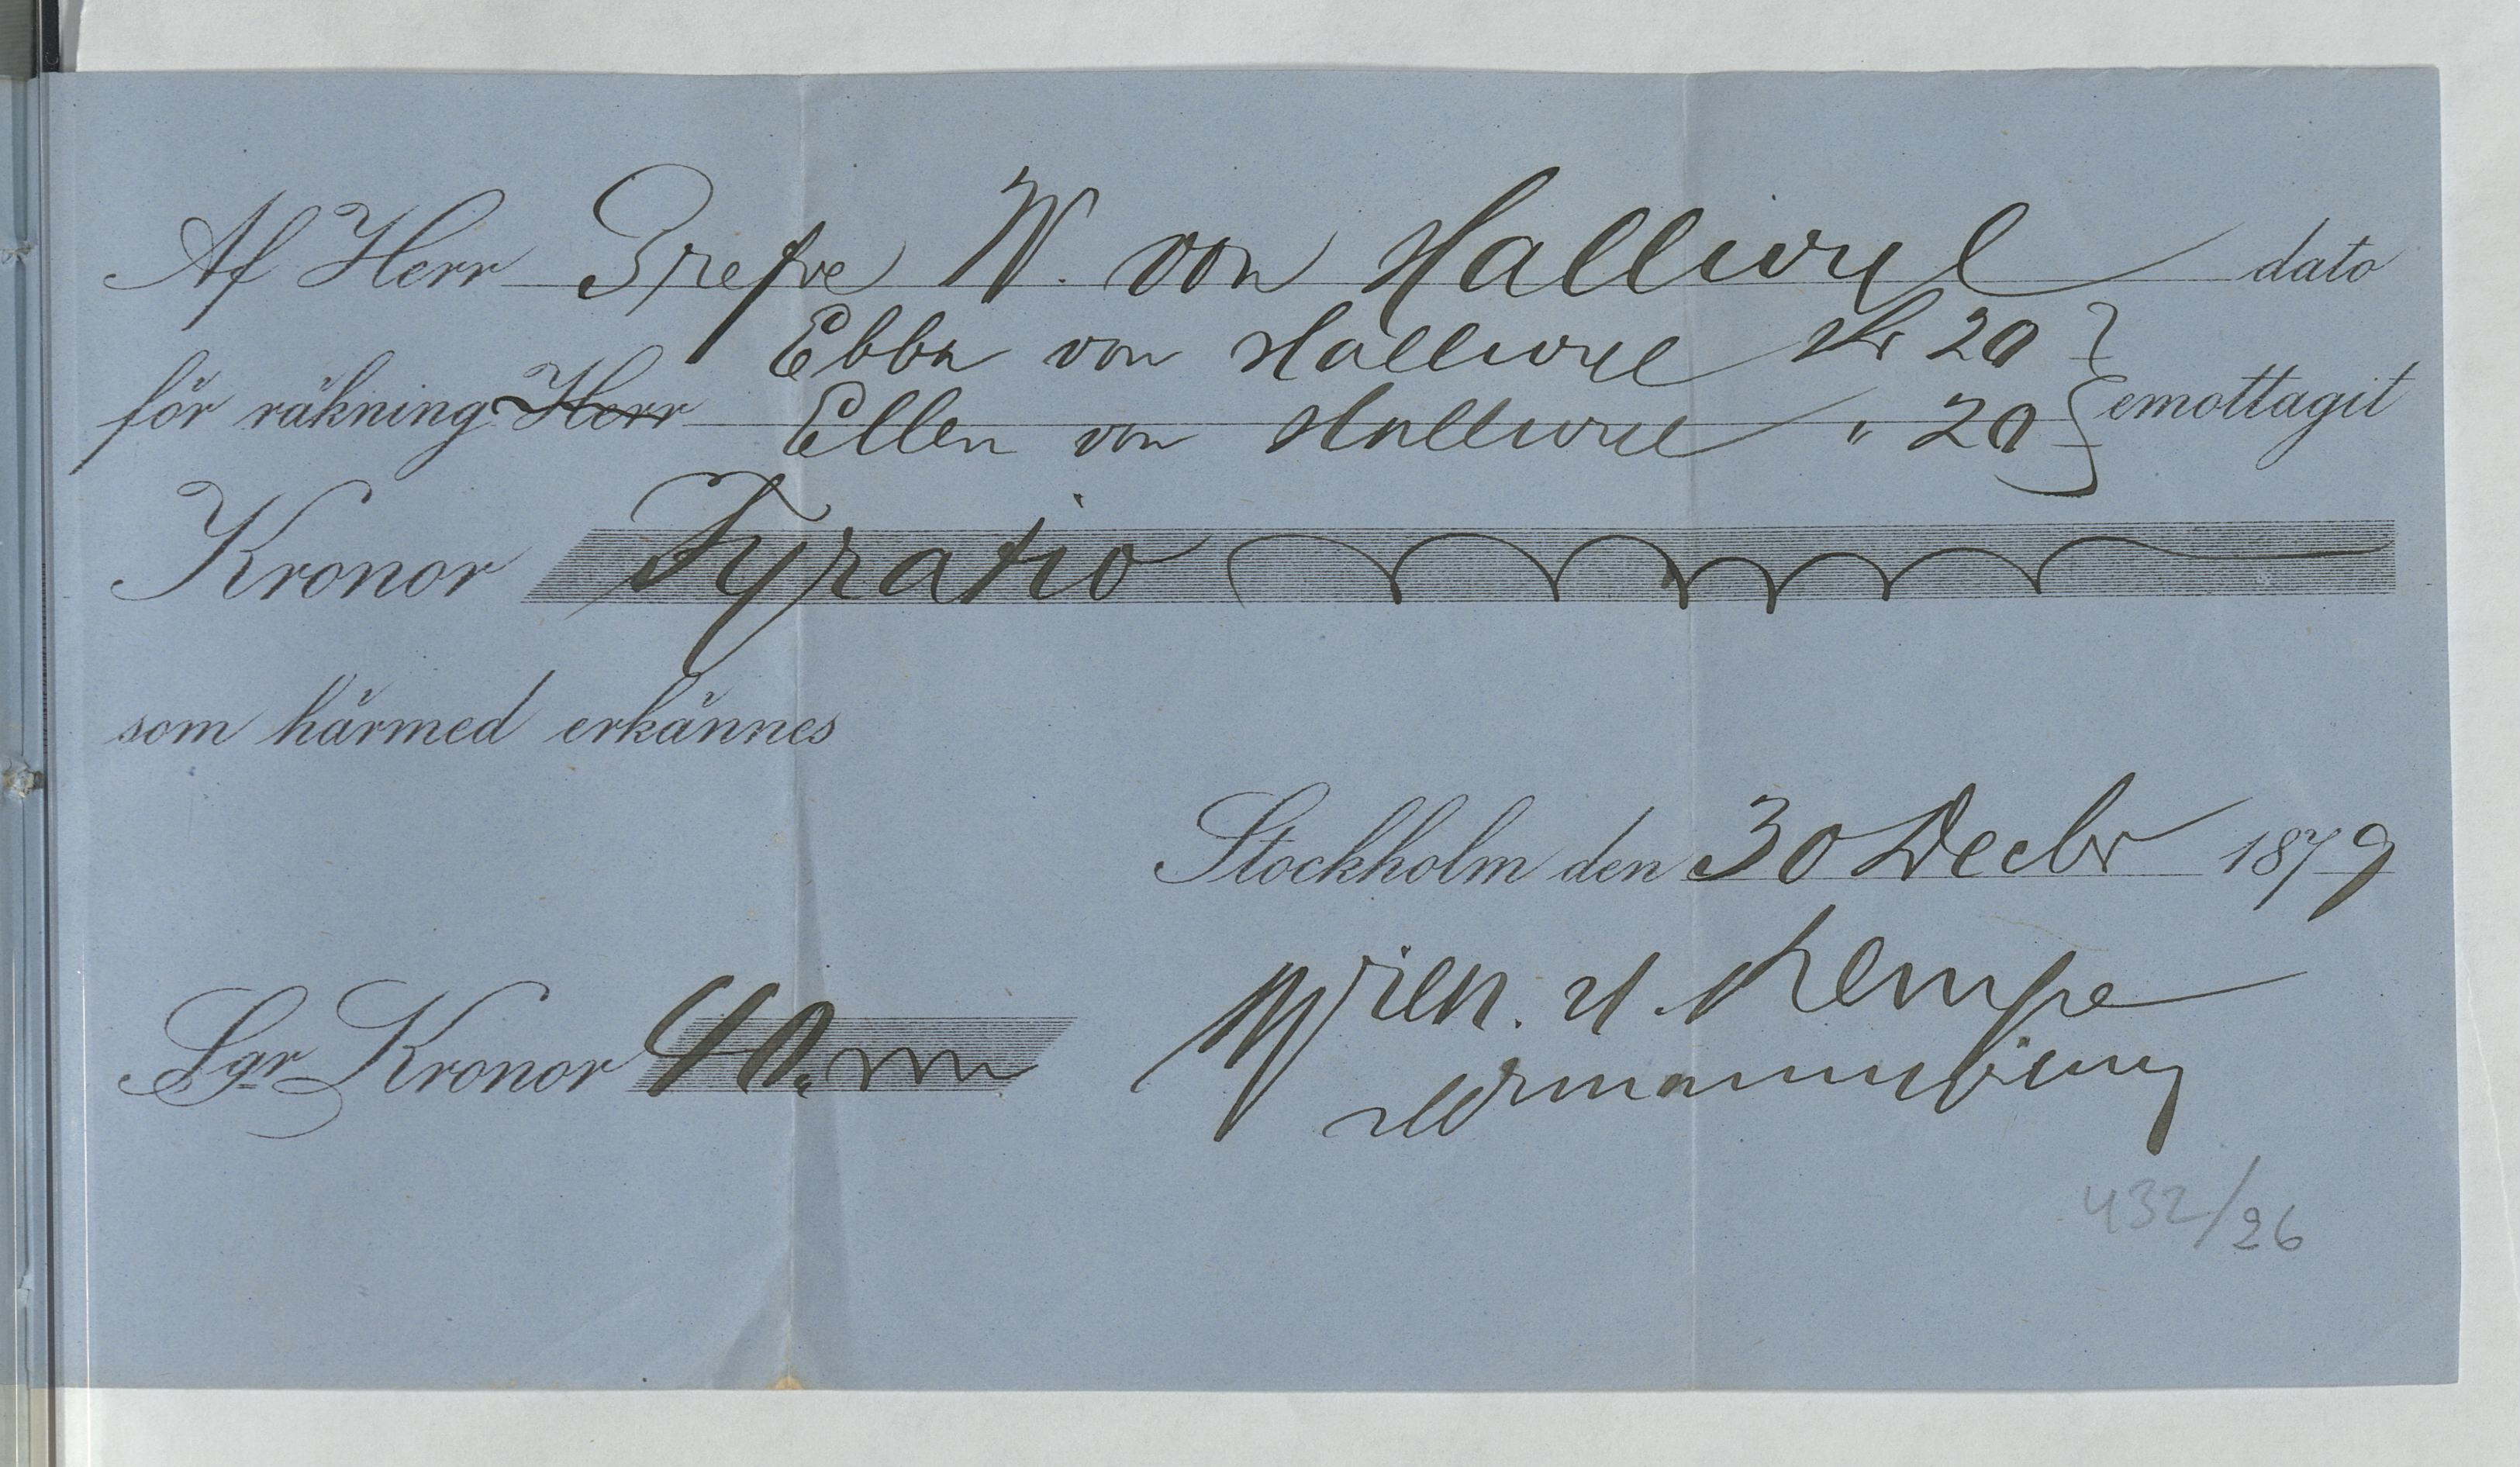 Af Herr Grefve W. von Hallwyl dato
Ebba von Hallwyl Kr 20
för räkning Herr emottagit
Ellen von Hallwyl " 20
Kronor Fyratio
som härmed erkännes
Stockholm den 30 Decbr 1879
Sgr Kronor 40
Kempe
432/26